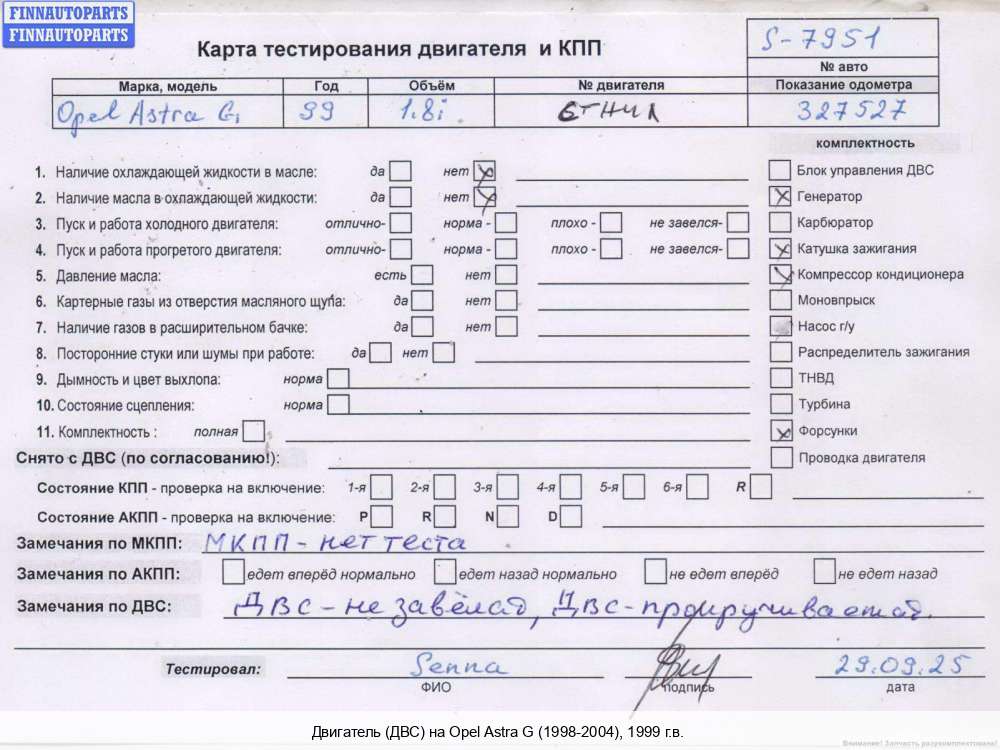 FINNAUTOPARTS
FINNAUTOPARTS
Карта тестирования двигателя и КПП
S-7951
№ авто
Марка, модель Год Объём № двигателя Показание одометра
Opel Astra G, 99 1.8i 327527
комплектность
1. Наличие охлаждающей жидкости в масле: да нет
Блок управления ДВС
2. Наличие масла в охлаждающей жидкости: да нет
Генератор
3. Пуск и работа холодного двигателя: отлично- норма - плохо - не завелся-
Карбюратор
4. Пуск и работа прогретого двигателя: отлично- норма - плохо - не завелся-
Катушка зажигания
5. Давление масла: есть нет
Компрессор кондиционера
6. Картерные газы из отверстия масляного щупа: да нет
Моновпрыск
7. Наличие газов в расширительном бачке: да нет
Насос г/у
8. Посторонние стуки или шумы при работе: да нет
Распределитель зажигания
9. Дымность и цвет выхлопа: норма
ТНВД
10. Состояние сцепления: норма
Турбина
11. Комплектность : полная
Форсунки
Снято с ДВС (по согласованию!):
Проводка двигателя
Состояние КПП - проверка на включение: 1-я 2-я 3-я 4-я 5-я 6-я R
Состояние АКПП - проверка на включение: P R N D
Замечания по МКПП: МКПП - нет теста
Замечания по АКПП: едет вперёд нормально едет назад нормально не едет вперёд не едет назад
Замечания по ДВС: ДВС - не завёлся, ДВС - прокручивается.
Тестировал: Senna 29.09.25
ФИО подпись дата
Двигатель (ДВС) на Opel Astra G (1998-2004), 1999 г.в.
Внимание! Запчасть разукомплектована!